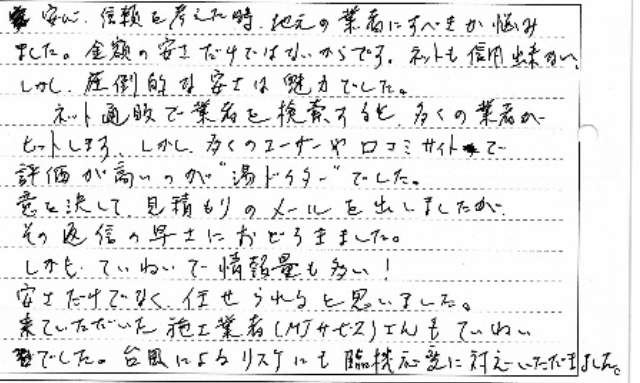 安心、信頼を考えた時、地元の業者にすべきか悩み
ました。金額の安さだけではないからです。ネットも信用出来ない。
しかし、圧倒的な安さは魅力でした。
ネット通販で業者を検索すると、多くの業者が
ヒットします。しかし、多くのユーザーや口コミサイトで
評価が高いのが"湯ドクター"でした。
意を決して、見積もりのメールを出しましたが、
その返信の早さにおどろきました。
しかも、ていねいで情報量も多い!
安さだけでなく、任せられると思いました。
来ていただいた施工業者(MJサービス)さんもていねい
でした。台風によるリスクにも臨機応変に対応いただきました。